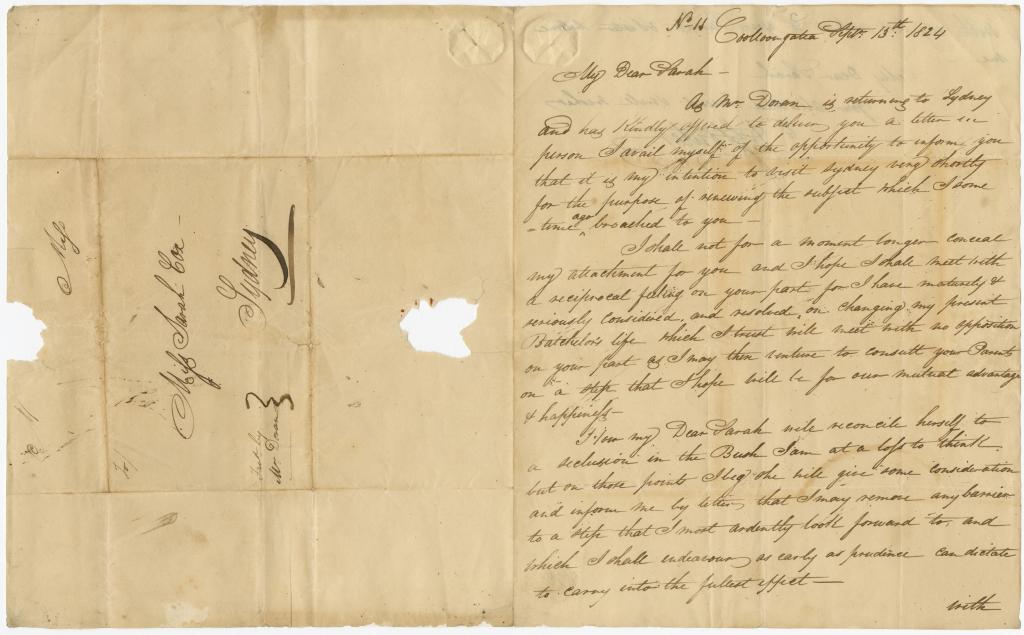 Miss
Miss Sarah Cox -
Sydney
Mr Doran
No 11
Coolloongatta Septr. 13th. 1824
My Dear Sarah -
As Mr Doran is returning to Sydney
and has Kindly offered to deliver you a letter in
person I avail myself of the opportunity to inform you
that it is my intention to visit Sydney very shortly
for the purpose of renewing the subject which I some
-time ago broached to you -
I shall not for a moment longer conceal
my attachment for you and I hope I shall meet with
a reciprocal feeling on your part for I have maturely &
seriously considered, and resolved, on changing my present
Batchelors life which I trust will meet with no opposition
on your part as I may then venture to consult your Parents
on a step that I hope will be for our mutual advantage
& happiness -
How my Dear Sarah will reconcile herself to
a seclusion in the Bush I am at a loss to think
but on those points I beg she will give some consideration
and inform me by letter, that I may remove any barrier
to a step that I most ardently look forward to, and
which I shall endeavour as early as prudence can dictate
to carry into the fullest effect -
with